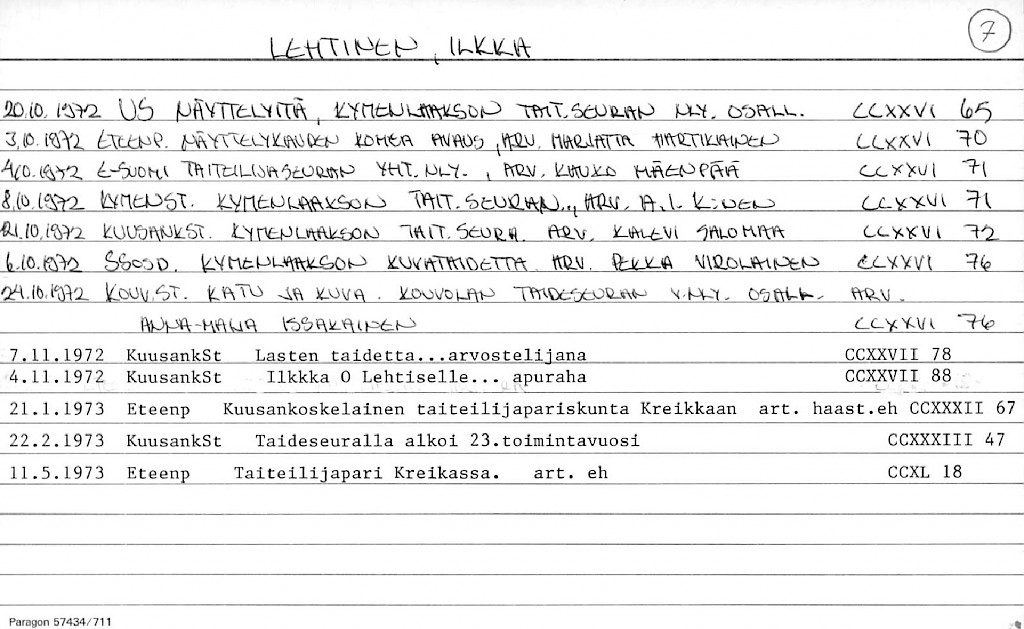 7
LEHTINEN, ILKKA
20.10.1972 US NÄYTTELYITÄ, KYMENLAAKSON TAIT.SEURAN NLY. OSALL. CCXXVI 65
3.10.1972 ETEENP. NÄYTTELYKAUDEN KOMEA AVAUS, ARV. MARJATTA HARTIKAINEN CCXXVI 70
4.10.1972 E-SUOMI TAITEILIJASEURAN YHT.NLY., ARV. KAUKO MÄENPÄÄ CCXXVI 71
8.10.1972 KYMENST. KYMENLAAKSON TAIT.SEURAN.., ARV. A.I. K:NEN CCXXVI 71
21.10.1972 KUUSANKST. KYMENLAAKSON TAIT.SEURA. ARV. KALEVI SALOMAA CCXXVI 72
6.10.1972 SSOSD. KYMENLAAKSON KUVATAIDETTA. ARV. PEKKA VIROLAINEN CCXXVI 76
24.10.1972 KOUV.ST. KATU JA KUVA. KOUVOLAN TAIDESEURAN V.NLY. OSALL. ARV.
ANNA-MAIJA ISSAKAINEN CCXXVI 76
7.11.1972 KuusankSt Lasten taidetta...arvostelijana CCXXVII 78
4.11.1972 KuusankSt Ilkkka O Lehtiselle... apuraha CCXXVII 88
21.1.1973 Eteenp Kuusankoskelainen taiteilijapariskunta Kreikkaan art. haast.eh CCXXXII 67
22.2.1973 KuusankSt Taideseuralla alkoi 23.toimintavuosi CCXXXIII 47
11.5.1973 Eteenp Taiteilijapari Kreikassa. art. eh CCXL 18
Paragon 57434/711